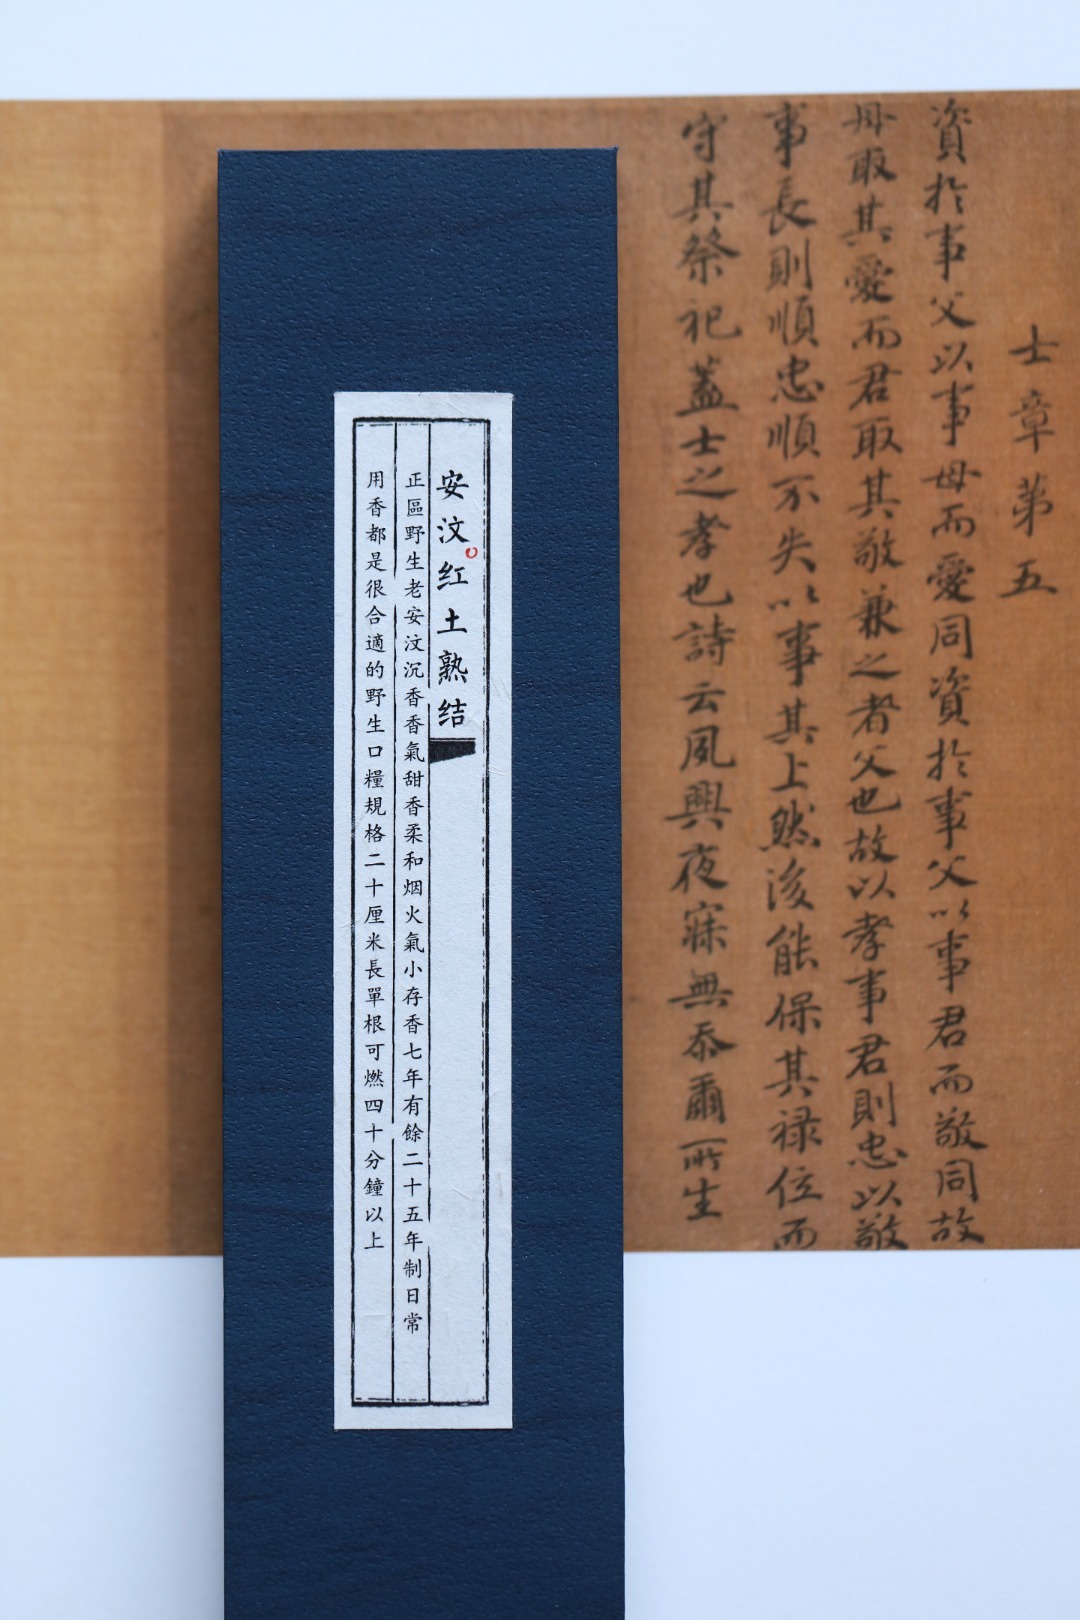 士章第五
資於事父以事母而愛同資於事父以事君而敬同故
母取其愛而君取其敬兼之者父也故以孝事君則忠以敬
事長則順忠順不失以事其上然後能保其祿位而
守其祭祀蓋士之孝也詩云夙興夜寐無忝爾所生
安汶红土熟结
正區野生老安汶沉香香氣甜香柔和烟火氣小存香七年有餘二十五年制日常
用香都是很合適的野生口糧規格二十厘米長單根可燃四十分鐘以上